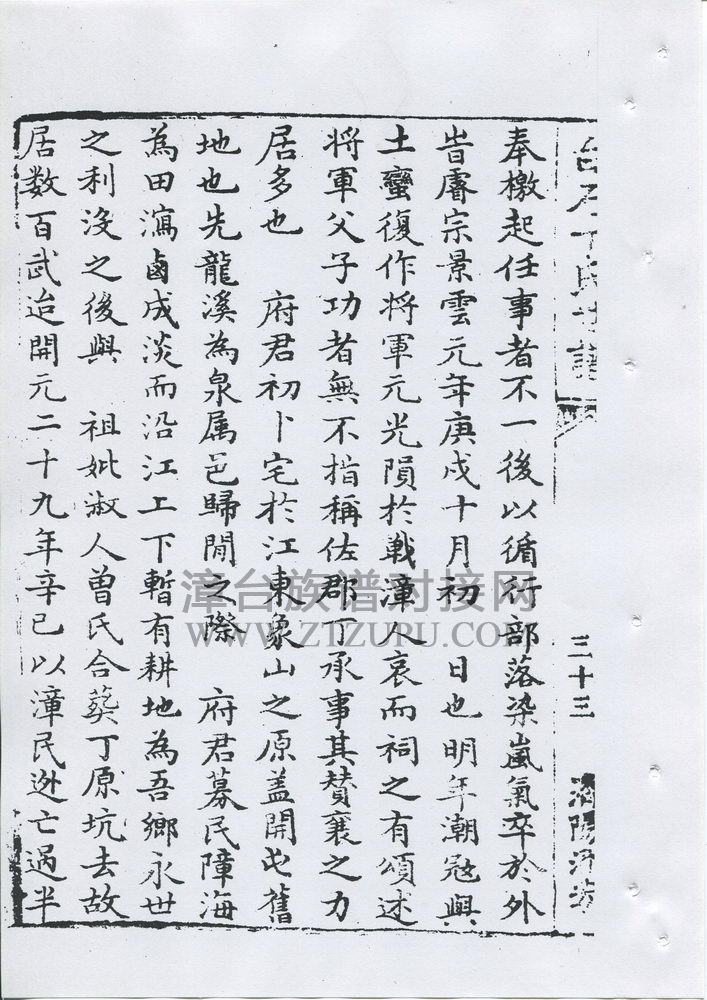 奉檄起任事者不一後以循行部落染嵐氣卒於外
旹睿宗景雲元年庚戌十月初 日也明年潮寇與
土蠻復作將軍元光隕於戰漳人哀而祠之有頌述
將軍父子功者無不指稱佐郡丁承事其賛襄之力
居多也 府君初卜宅於江東象山之原盖開屯舊
地也先龍溪為泉属邑歸閒之際 府君募民障海
為田瀉鹵成淡而沿江上下暫有耕地為吾鄉永世
之利没之後與 祖妣淑人曾氏合葵丁原坑去故
居数百武迨開元二十九年辛巳以漳民逊亡過半
三十三
漳台族谱对接网
WWW.ZTZUPU.COM